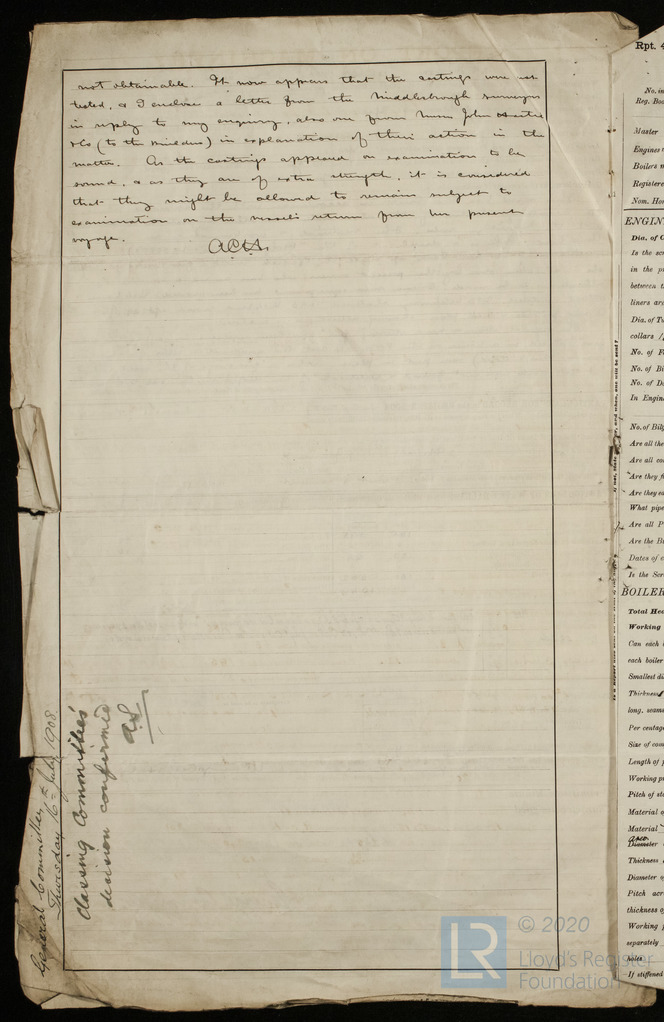 not obtainable. It now appears that the castings were not
tested, & I enclose a letter from the Middlesbrough surveyor
in reply to my enquiry, also one from Messrs John
& Co (to the builders) in explanation of their action in the
matter. As the castings appeared on examination to be
sound, & as they are of extra strength, it is considered
that they might be allowed to remain subject to
examination on the vessel's return from her present
voyage.
General Committee
Thursday 16th July 1908
Classing Committee's
decision confirmed
Rpt. 4
No. in
Reg. Boo
Master
Engines
Boilers
Registere
Nom. Hor
ENGIN
Dia. of C
Is the scr
in the p
between t
liners ar
Dia. of Tu
collars
No. of F
No. of Bi
No. of Do
In Engin
No. of Bilg
Are all the
Are all co
Are they f
Are they ea
What pipe
Are all P
Are the B
Dates of
Is the Scr
BOILER
Total Hea
Working
Can each
each boiler
Smallest di
Thickness
long. seams
Per centage
Size of
Length of
Working p
Pitch of st
Material o
Material
Diameter
Thickness
Diameter o
Pitch acr
thickness of
Working
separately
holes
If stiffened
© 2020
LR
Lloyd's Register
Foundation